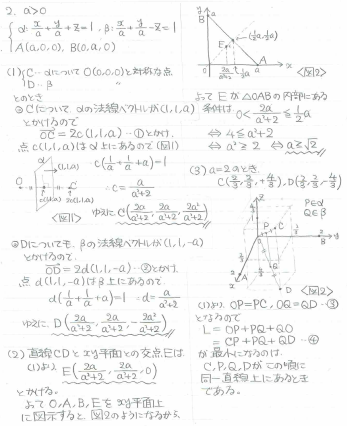 2. a>0
{ α: x/a + y/a + z = 1, β: x/a + y/a - z = 1
A(a,0,0), B(0,a,0)
(1) { C… αについて O(0,0,0)と対称な点
D… β 〃
とのとき
⊙Cについて αの法線ベクトルが(1,1,a)
とかけるので
OC = 2c(1,1,a) …①とかけ.
点c(1,1,a)はα上にあるので(図1)
c(1/a + 1/a + a) = 1
∴ c = a/(a²+2)
ゆえに C(2a/(a²+2), 2a/(a²+2), 2a²/(a²+2))
α
(1,1,a)
O
<図1>
⊙Dについても、βの法線ベクトルが(1,1,-a)
とかけるので
OD = 2d(1,1,-a) …②とかけ.
点 d(1,1,-a)はβ上にあるので.
d(1/a + 1/a + a) = 1 ∴ d = a/(a²+2)
ゆえに D(2a/(a²+2), 2a/(a²+2), -2a²/(a²+2))
(2) 直線CDとxy平面との交点Eは
(1)より E(2a/(a²+2), 2a/(a²+2), 0)
とかける。
よって O,A,B,Eをxy平面上
に図示すると、図2のようになるから、
y
a
B
E
(½a, ½a)
O
2a/(a²+2)
½a
A
a
x
<図2>
よって Eが△OABの内部にある
条件は
0 < 2a/(a²+2) < ½a
⇔ 4 ≦ a²+2
⇔ a² ≧ 2 ⇔ a ≧ √2
(3) a=2のとき.
C(2/3, 2/3, +4/3), D(2/3, 2/3, -4/3)
P∈α
Q∈β
z
P
C
B
y
A
x
Q
D
<図2>
(1)より, OP=PC, OQ=QD …③
となるので
L = OP+PQ+QO
= CP+PQ+QD …④
が最小になるのは.
C,P,Q,Dがこの順に
同一直線上にあるとき
である。